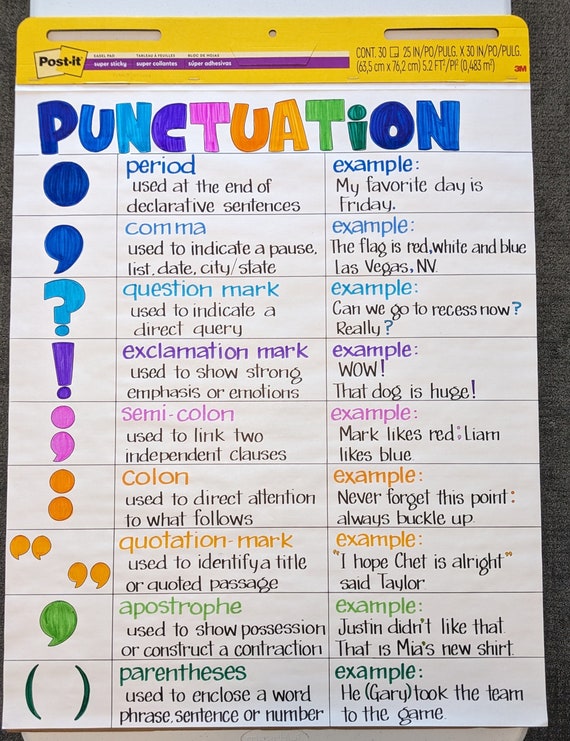 Post-it
EASEL PAD
super sticky
TABLEAU À FEUILLES
super collantes
BLOC DE HOJAS
súper adhesivas
CONT. 30 25 IN/PO/PULG. X 30 IN/PO/PULG.
(63,5 cm x 76,2 cm) 5.2 FT²/PI² (0,483 m²)
3M
PUNCTUATION
period
used at the end of
declarative sentences
example:
My favorite day is
Friday.
,
comma
used to indicate a pause,
list, date, city/state
example:
The flag is red, white and blue
Las Vegas, NV.
?
question mark
used to indicate a
direct query
example:
Can we go to recess now?
Really?
!
exclamation mark
used to show strong
emphasis or emotions
example:
WOW!
That dog is huge!
;
semi-colon
used to link two
independent clauses
example:
Mark likes red; Liam
likes blue
:
colon
used to direct attention
to what follows
example:
Never forget this point:
always buckle up
“ ”
quotation-mark
used to identify a title
or quoted passage
example:
"I hope Chet is alright"
said Taylor
’
apostrophe
used to show possession
or construct a contraction
example:
Justin didn't like that
That is Mia's new shirt
( )
parentheses
used to enclose a word
phrase, sentence or number
example:
He (Gary) took the team
to the game.